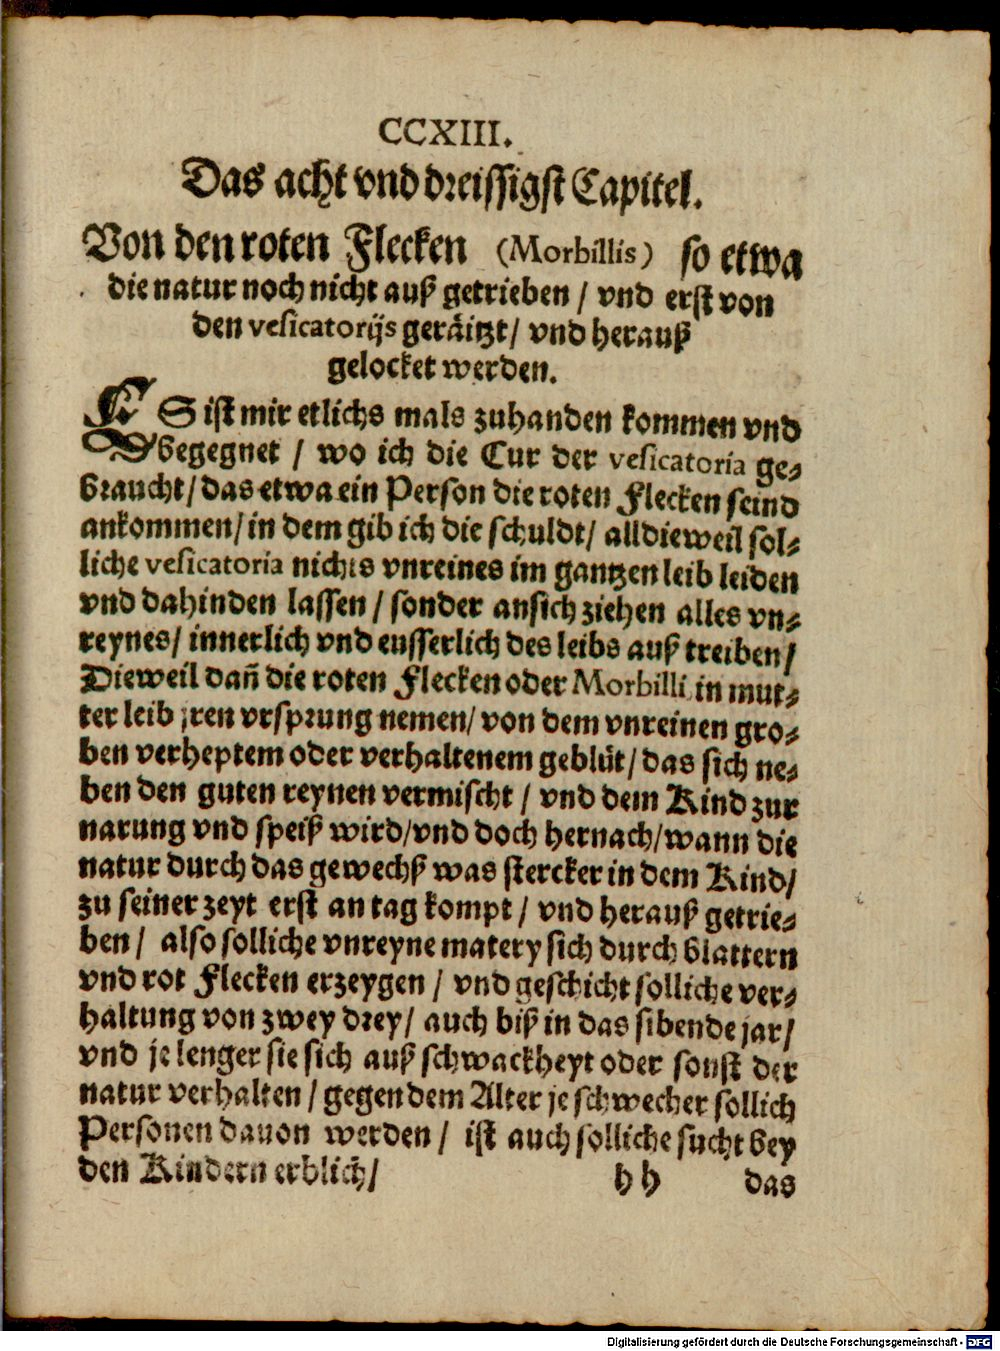 CCXIII.
Das acht vnd dreissigst Capitel.
Von den roten Flecken (Morbillis) so etwa
die natur noch nicht auß getrieben / vnd erst von
den vesicatorijs geräitzt / vnd herauß
gelocket werden.
ES ist mir etlichs mals zuhanden kommen vnd
begegnet / wo ich die Cur der vesicatoria ge⸗
braucht / das etwa ein Person die roten Flecken seind
ankommen / in dem gib ich die schuldt / alldieweil sol⸗
liche vesicatoria nichts vnreines im gantzen leib leiden
vnd dahinden lassen / sonder ansich ziehen alles vn⸗
reynes / innerlich vnd eusserlich des leibs auß treiben /
Dieweil dañ die roten Flecken oder Morbilli in mut⸗
ter leib jren vrsprung nemen / von dem vnreinen gro⸗
ben verheptem oder verhaltenem geblüt / das sich ne⸗
ben den guten reynen vermischt / vnd dem Kind zur
narung vnd speiß wird / vnd doch hernach / wann die
natur durch das gewechß was stercker in dem Kind /
zu seiner zeyt erst an tag kompt / vnd herauß getrie⸗
ben / also solliche vnreyne matery sich durch blattern
vnd rot Flecken erzeygen / vnd geschicht solliche ver⸗
haltung von zwey drey / auch biß in das sibende jar /
vnd je lenger sie sich auß schwackheyt oder sonst der
natur verhalten / gegen dem Alter je schwecher sollich
Personen dauon werden / ist auch solliche sucht bey
den Kindern erblich /
hh das
Digitalisierung gefördert durch die Deutsche Forschungsgemeinschaft - DFG